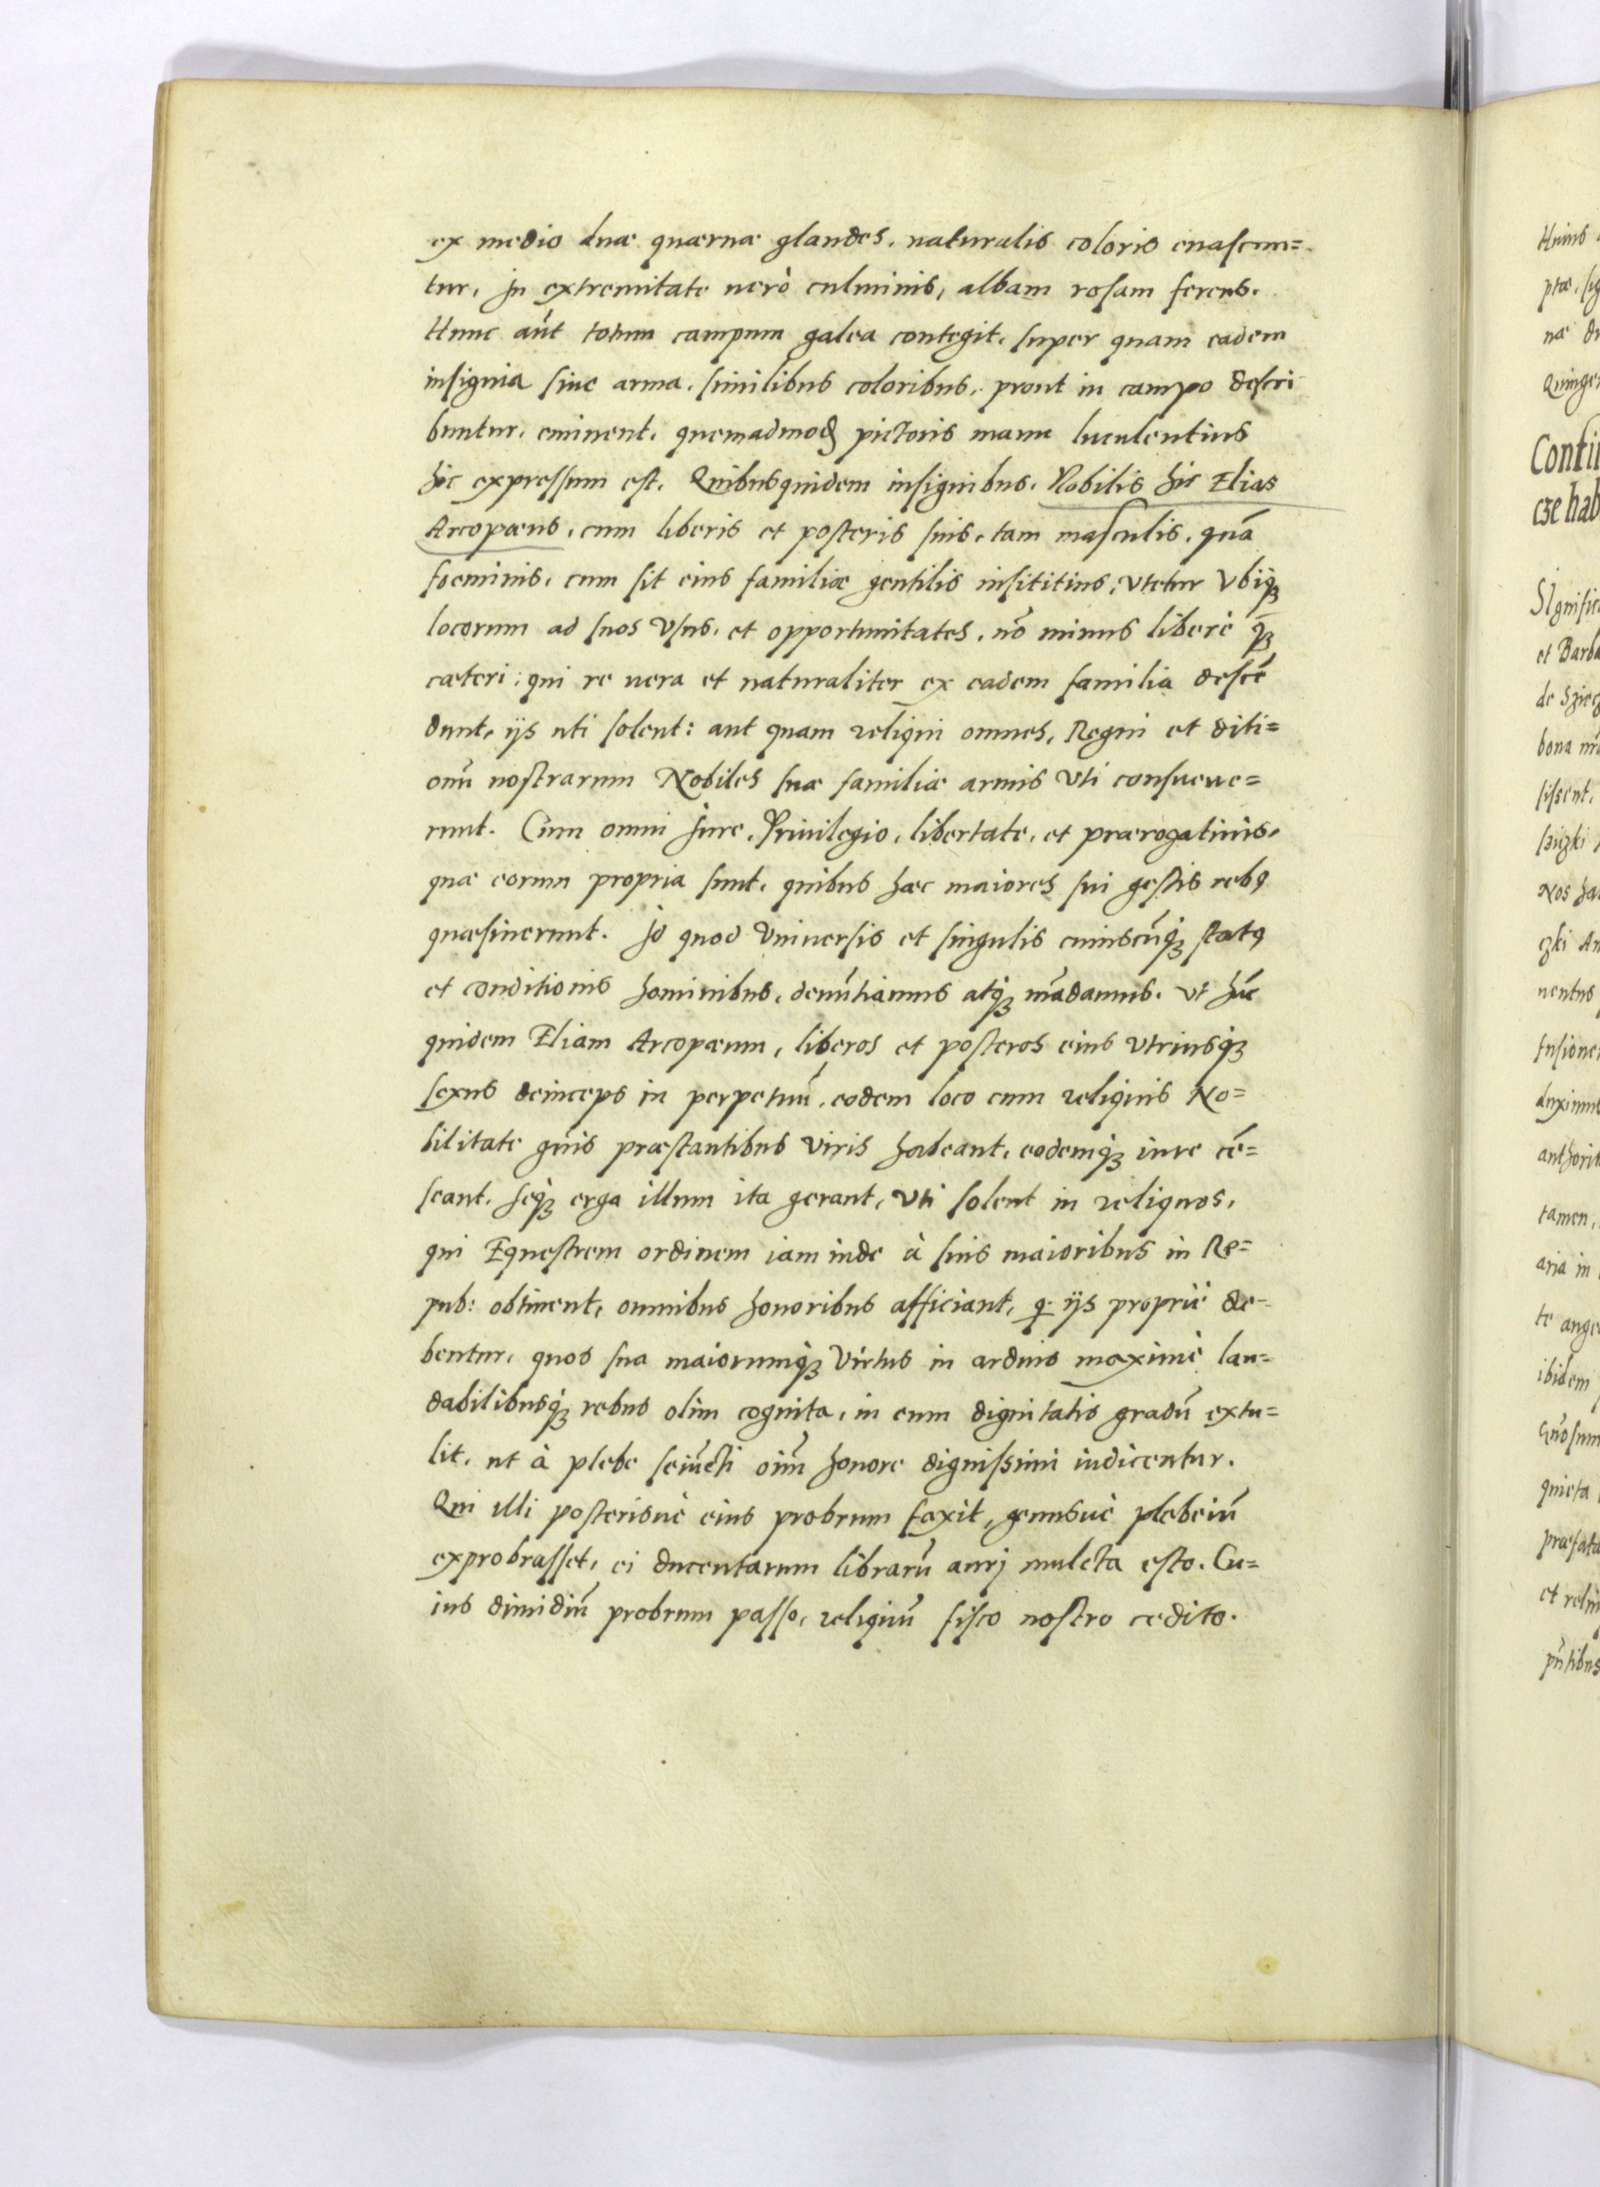 ex medio duæ quærnæ glandes, naturalis coloris enascun=
tur, In extremitate uerò culminis, albam rosam ferens.
Hunc aũt totum campum galea contegit, super quam eadem
insignia siue arma, similibus coloribus, prout in campo descri
buntur, eminent, quemadmođ pictoris manu luculentius
hic expressum est. Quibusquidem insignibus, Nobilis hic Elias
Arcopæus, cum liberis et posteris suis, tam masculis, quã
foeminis, cum sit eius familiæ gentilis insititius, vtetur vbiqȝ
locorum ad suos vsus, et opportunitates, nõ minus liberè q̃ȝ
cæteri: qui re uera et naturaliter ex eadem familia descẽ
dunt, ijs uti solent: aut quam reliqui omnes, Regni et diti=
onũ nostrarum Nobiles suæ familiæ armis vti consueue=
runt. Cum omni Iure, Priuilegio, libertate, et prærogatiuis,
quæ eorum propria sunt, quibus hæc maiores sui gestis rebꝯ
quæsiuerunt. Id quod vniuersis et singulis cuiuscũqȝ statꝯ
et conditionis hominibus, denũtiamus atqȝ mãdamus. vt hũc
quidem Eliam Arcopæum, liberos et posteros eius vtriusqȝ
sexus deinceps in perpetuũ, eodem loco cum reliquis No=
bilitate gñis præstantibus viris habeant, eodemqȝ iure cẽ=
seant, seqȝ erga illum ita gerant, vti solent in reliquos,
qui Equestrem ordinem iam inde à suis maioribus in Re=
pub: obtinent, omnibus honoribus afficiant, q̨ ijs propriè de=
bentur, quos sua maiorumqȝ virtus in arduis maximè lau=
dabilibusqȝ rebus olim cognita, in eum dignitatis gradũ extu=
lit, ut à plebe seiũcti oĩm honore dignissimi iudicentur.
Qui illi posterisuè eius probrum faxit, genusuè plebeiũ
exprobrasset, ei ducentarum librarũ auri mulcta esto. Cu=
ius dimidiũ probrum passo, reliquũ fisco nostro cedito.
Huius
ptæ, sig
næ du
Quinge
Confir
cze hab
SIgnific
et Barba
de Sziecz
bona
sissent,
Nos ha
czki An
uentus
fusione
duximus
authorit
tamen,
aria in
te ange
ibidem
quieta
præfata
et reliq
pñtibus